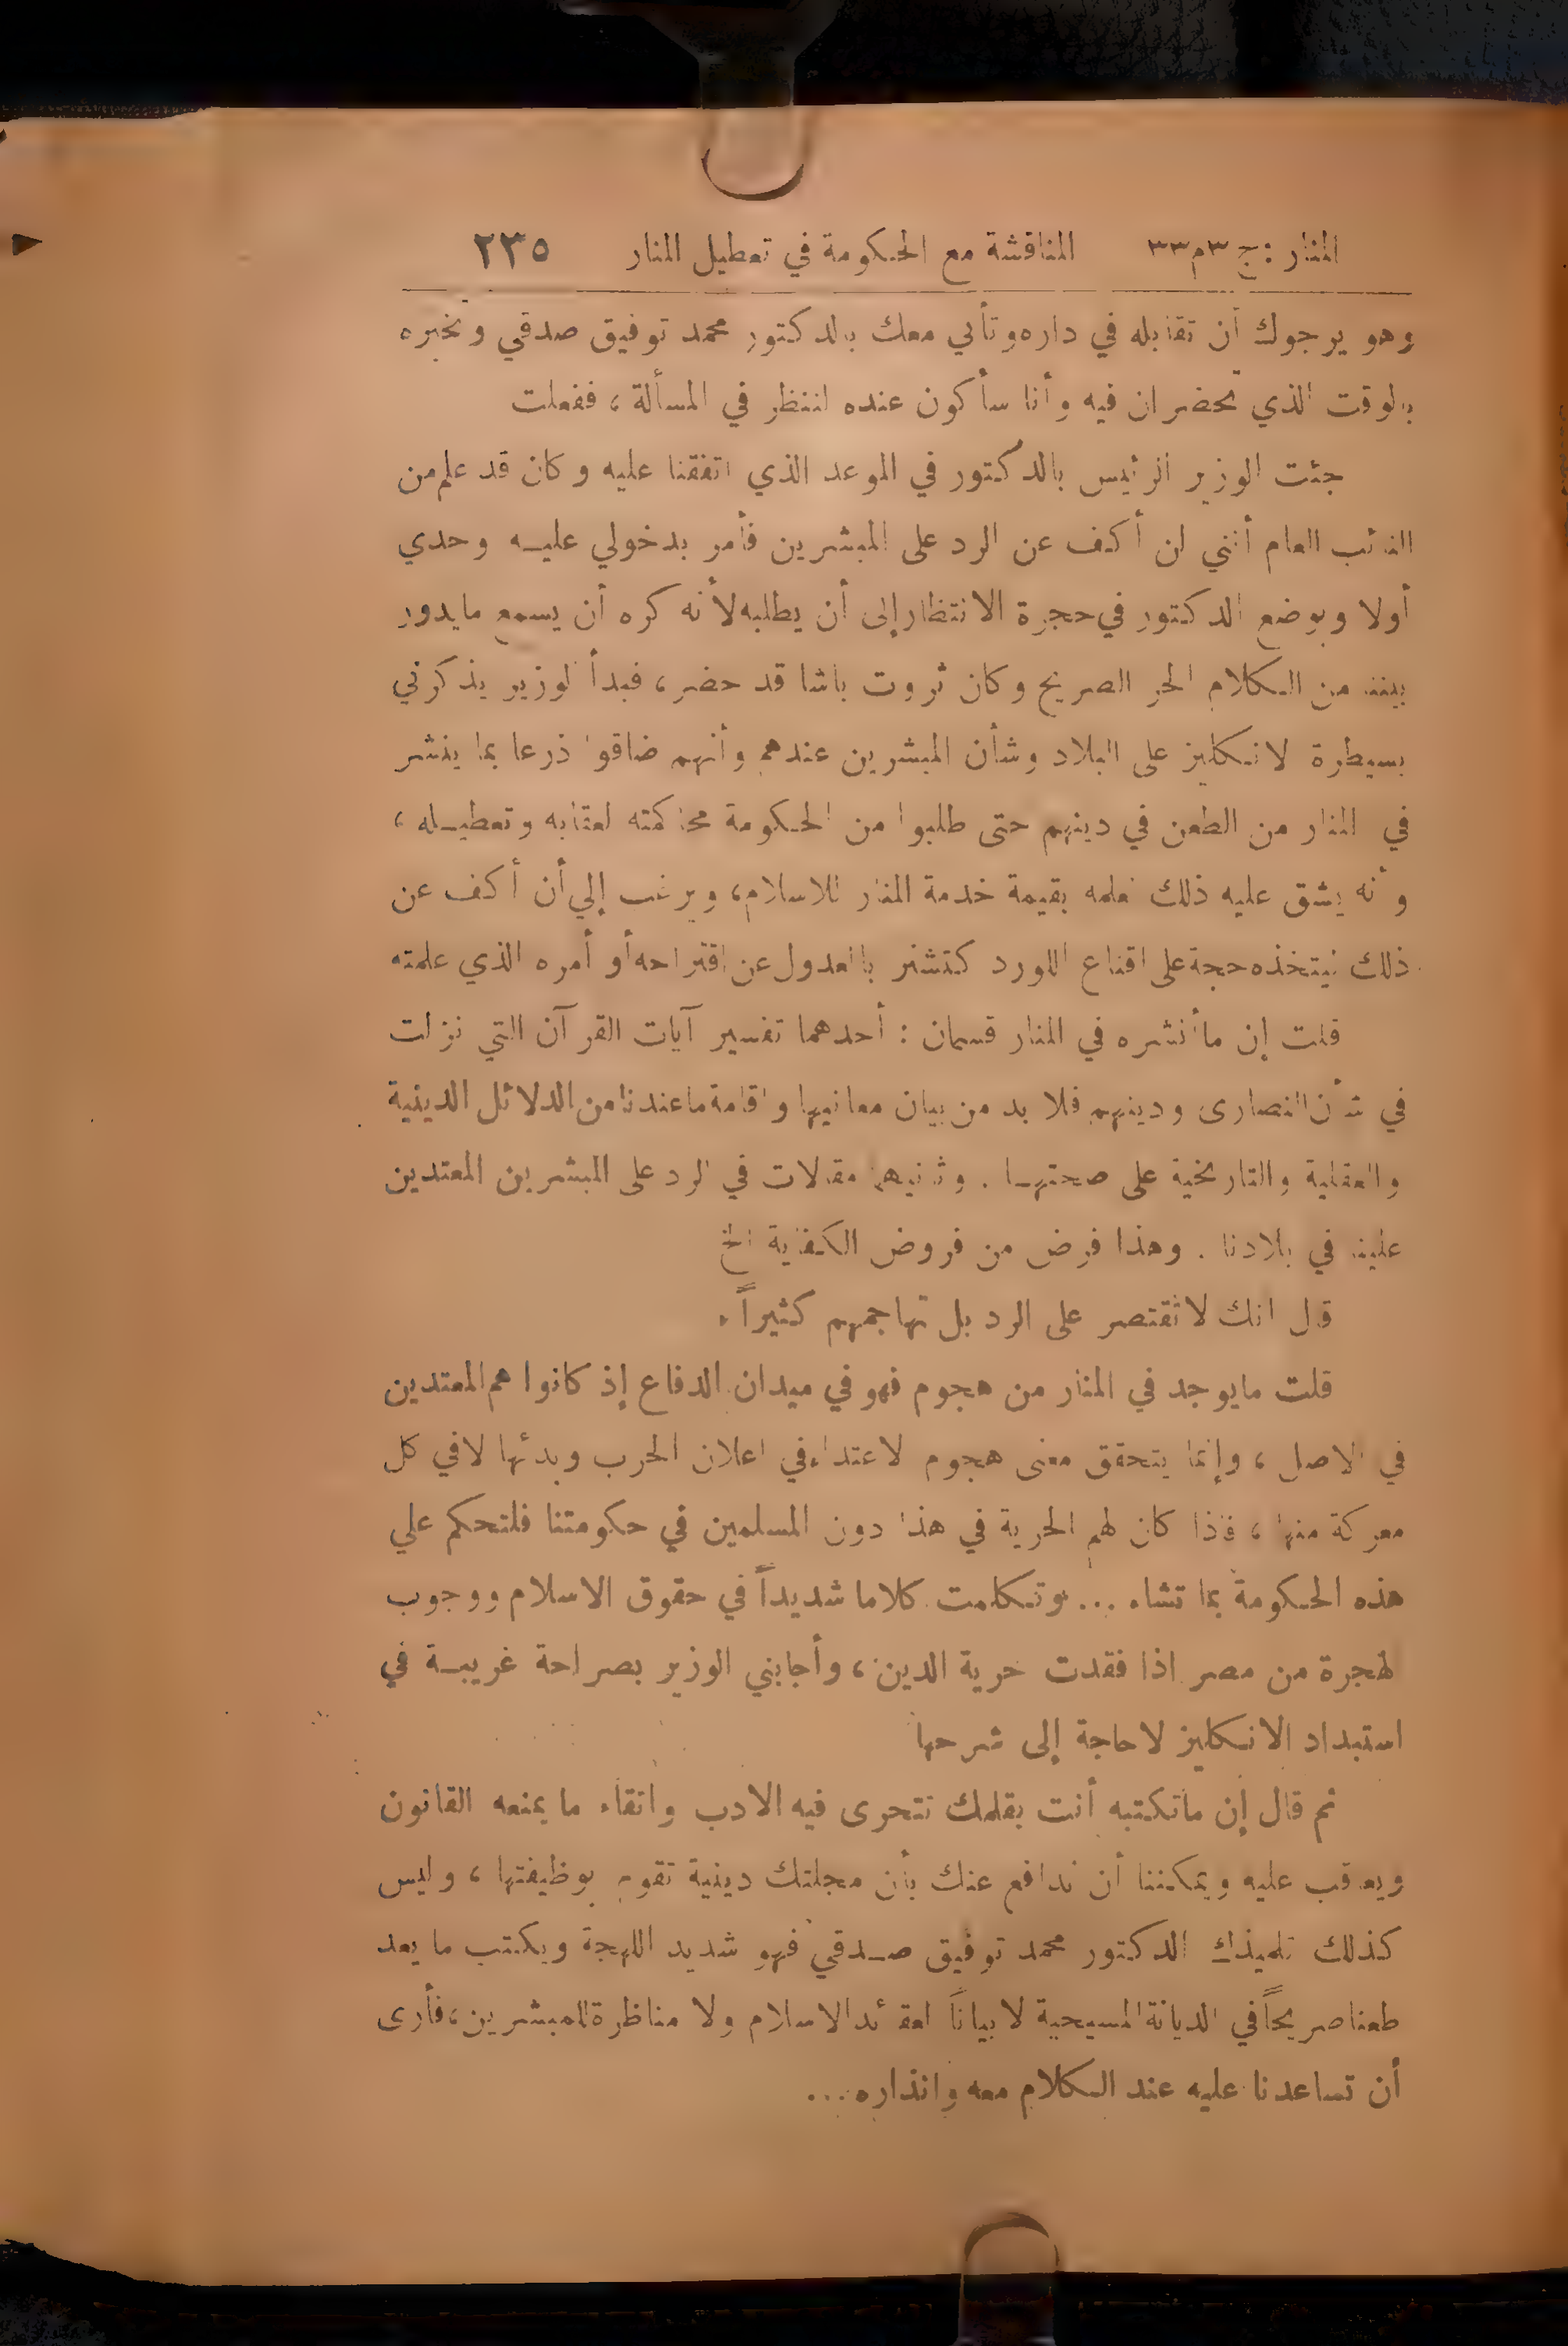 المنار : ج ٣ م ٣٣ المناقشة مع الحكومة في تعطيل المنار ٢٣٥
وهو يرجوك أن تقابله في داره وتأتي معك بالدكتور محمد توفيق صدقي وتخبره
بالوقت الذي تحضران فيه وأنا سأكون عنده لننظر في المسألة ، ففعلت
جئت الوزير الرئيس بالدكتور في الموعد الذي اتفقنا عليه وكان قد علم من
النائب العام أنني لن أكف عن الرد على المبشرين فأمر بدخولي عليه وحدي
أولا وبوضع الدكتور في حجرة الانتظار إلى أن يطلبه لأنه كره أن يسمع مايدور
بيننا من الكلام الحر الصريح وكان ثروت باشا قد حضر ، فبدأ الوزير يذكرني
بسيطرة الانكليز على البلاد وشأن المبشرين عندهم وأنهم ضاقوا ذرعا بما ينشر
في المنار من الطعن في دينهم حتى طلبوا من الحكومة محاكمته لعقابه وتعطيله ،
وأنه يشق عليه ذلك لعلمه بقيمة خدمة المنار للاسلام ، ويرغب إلي أن أكف عن
ذلك ليتخذه حجة على اقناع اللورد كتشنر بالعدول عن اقتراحه أو أمره الذي علمته
قلت إن ما أنشره في المنار قسمان : أحدهما تفسير آيات القرآن التي نزلت
في شأن النصارى ودينهم فلا بد من بيان معانيها واقامة ماعندنا من الدلائل الدينية
والعقلية والتاريخية على صحتها . وثانيهما مقالات في الرد على المبشرين المعتدين
علينا في بلادنا . وهذا فرض من فروض الكفاية الخ
قال انك لاتقتصر على الرد بل تهاجمهم كثيراً .
قلت مايوجد في المنار من هجوم فهو في ميدان الدفاع إذ كانوا هم المعتدين
في الاصل ، وإنما يتحقق معنى هجوم الاعتداء في اعلان الحرب وبدئها لافي كل
معركة منها ، فاذا كان لهم الحرية في هذا دون المسلمين في حكومتنا فلتحكم علي
هذه الحكومة بما تشاء ... وتكلمت كلاما شديداً في حقوق الاسلام ووجوب
الهجرة من مصر اذا فقدت حرية الدين ، وأجابني الوزير بصراحة غريبة في
استبداد الانكليز لاحاجة إلى شرحها
ثم قال إن ماتكتبه أنت بقلمك تتحرى فيه الادب واتقاء ما يمنعه القانون
ويعاقب عليه ويمكننا أن ندافع عنك بأن مجلتك دينية تقوم بوظيفتها ، وليس
كذلك تلميذك الدكتور محمد توفيق صدقي فهو شديد اللهجة ويكتب ما يعد
طعنا صريحاً في الديانة المسيحية لابياناً لعقائد الاسلام ولا مناظرة للمبشرين ، فأرى
أن تساعدنا عليه عند الكلام معه وانذاره ...